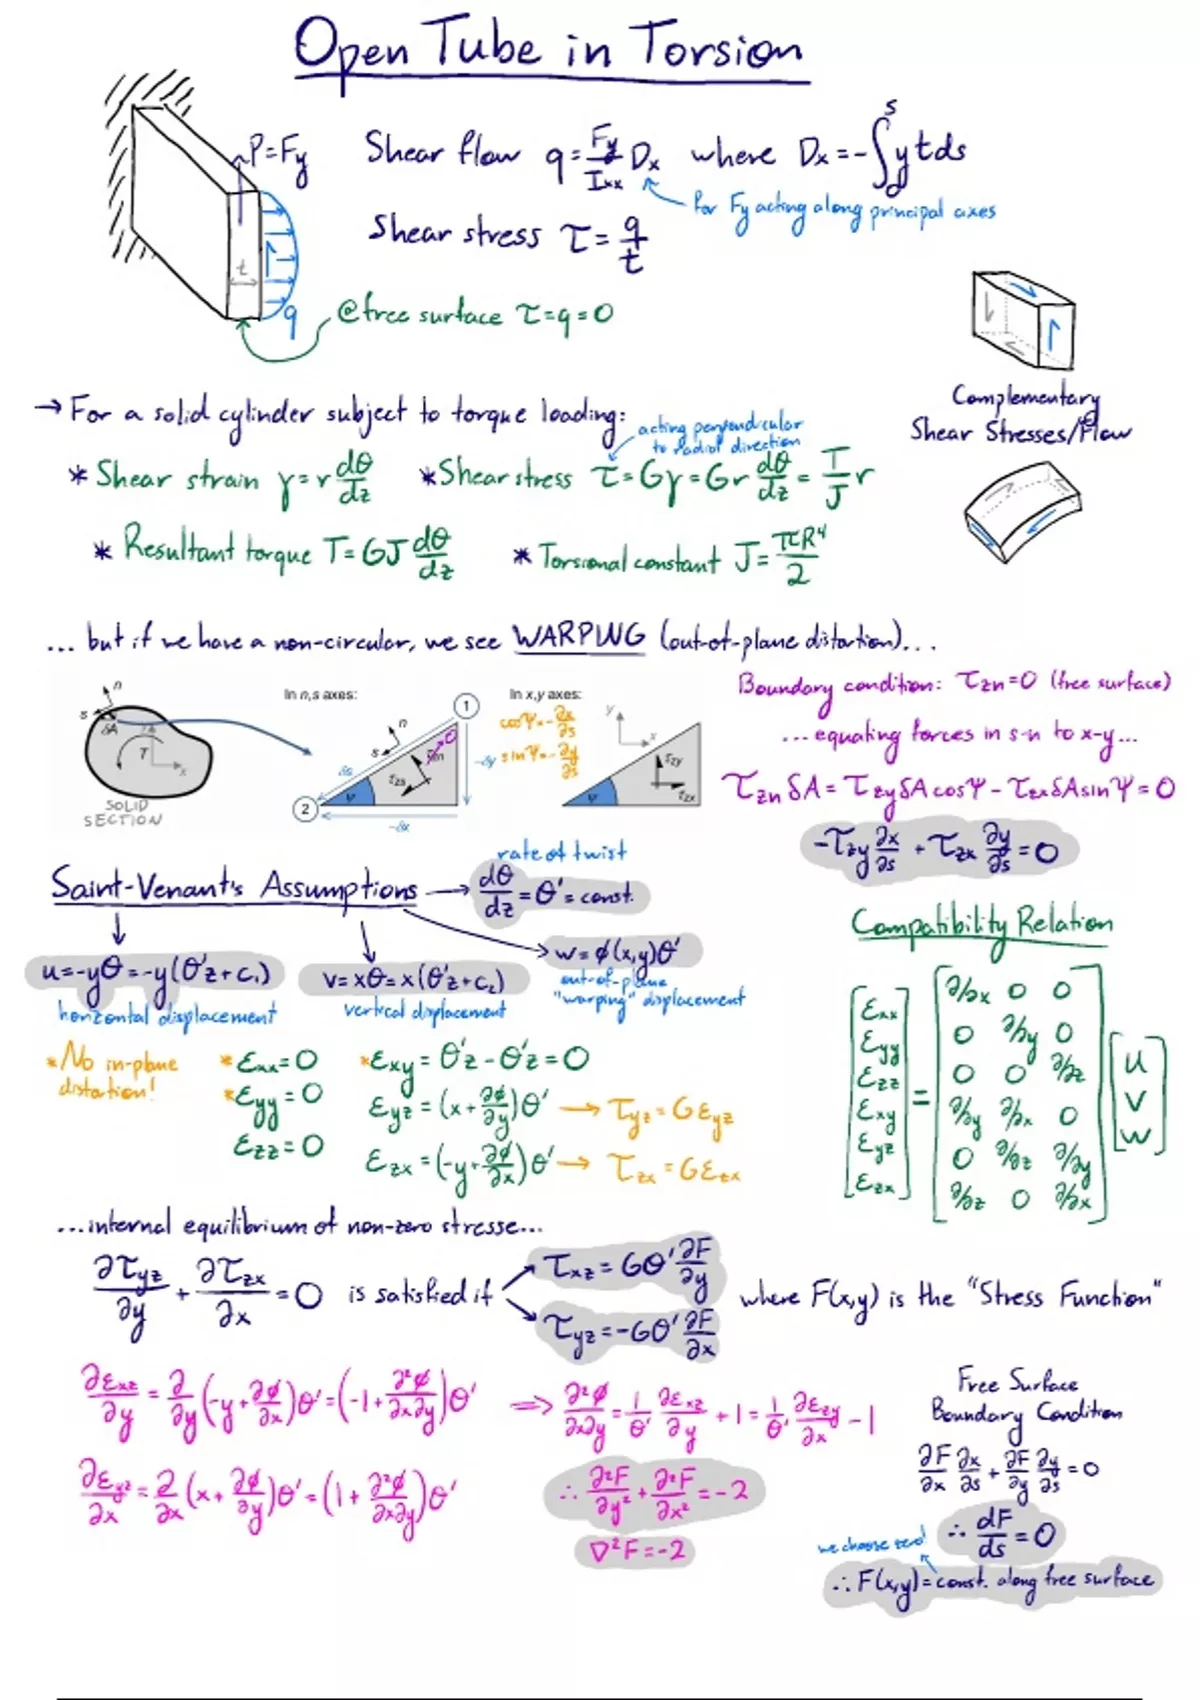 Open Tube in Torsion
P=Fy
Shear flow q = Fy/Ixx Dx where Dx = -∫₀ˢ y t ds
for Fy acting along principal axes
Shear stress τ = q/t
t
q
@free surface τ=q=0
→ For a solid cylinder subject to torque loading:
acting perpendicular
to radial direction
Complementary
Shear Stresses/Flow
* Shear strain γ = r dθ/dz * Shear stress τ = Gγ = Gr dθ/dz = T/J r
* Resultant torque T = GJ dθ/dz * Torsional constant J = πR⁴/2
... but if we have a non-circular, we see WARPING (out-of-plane distortion)...
n
s
δA
y
T
x
SOLID
SECTION
In n,s axes:
1
n
s
δs
τzn
0
τzs
ψ
-δy
2
-δx
In x,y axes:
cosΨ = -∂x/∂s
sinΨ = -∂y/∂s
y
x
τzy
τzx
ψ
Boundary condition: τzn = 0 (free surface)
... equating forces in s-n to x-y...
τzn δA = τzy δA cosΨ - τzx δA sinΨ = 0
-τzy ∂x/∂s + τzx ∂y/∂s = 0
Saint-Venant's Assumptions
rate of twist
dθ/dz = θ' = const.
u = -yθ = -y(θ'z + c₁)
horizontal displacement
v = xθ = x(θ'z + c₂)
vertical displacement
w = φ(x,y)θ'
out-of-plane
"warping" displacement
Compatibility Relation
[εxx εyy εzz εxy εyz εzx] = [∂/∂x 0 0
0 ∂/∂y 0
0 0 ∂/∂z
∂/∂y ∂/∂x 0
0 ∂/∂z ∂/∂y
∂/∂z 0 ∂/∂x] [u v w]
* No in-plane
distortion!
* εxx = 0
* εyy = 0
εzz = 0
* εxy = θ'z - θ'z = 0
εyz = (x + ∂φ/∂y)θ' → τyz = Gεyz
εzx = (-y + ∂φ/∂x)θ' → τzx = Gεzx
...internal equilibrium of non-zero stresse...
∂τyz/∂y + ∂τzx/∂x = 0 is satisfied if
τxz = Gθ' ∂F/∂y
τyz = -Gθ' ∂F/∂x
where F(x,y) is the "Stress Function"
∂εxz/∂y = ∂/∂y (-y + ∂φ/∂x)θ' = (-1 + ∂²φ/∂x∂y)θ' ⇒ ∂²φ/∂x∂y = 1/θ' ∂εxz/∂y + 1 = 1/θ' ∂εzy/∂x - 1
∂εyz/∂x = ∂/∂x (x + ∂φ/∂y)θ' = (1 + ∂²φ/∂x∂y)θ'
∴ ∂²F/∂y² + ∂²F/∂x² = -2
∇²F = -2
Free Surface
Boundary Condition
∂F/∂x ∂x/∂s + ∂F/∂y ∂y/∂s = 0
∴ dF/ds = 0
we choose zero!
∴ F(x,y) = const. along free surface